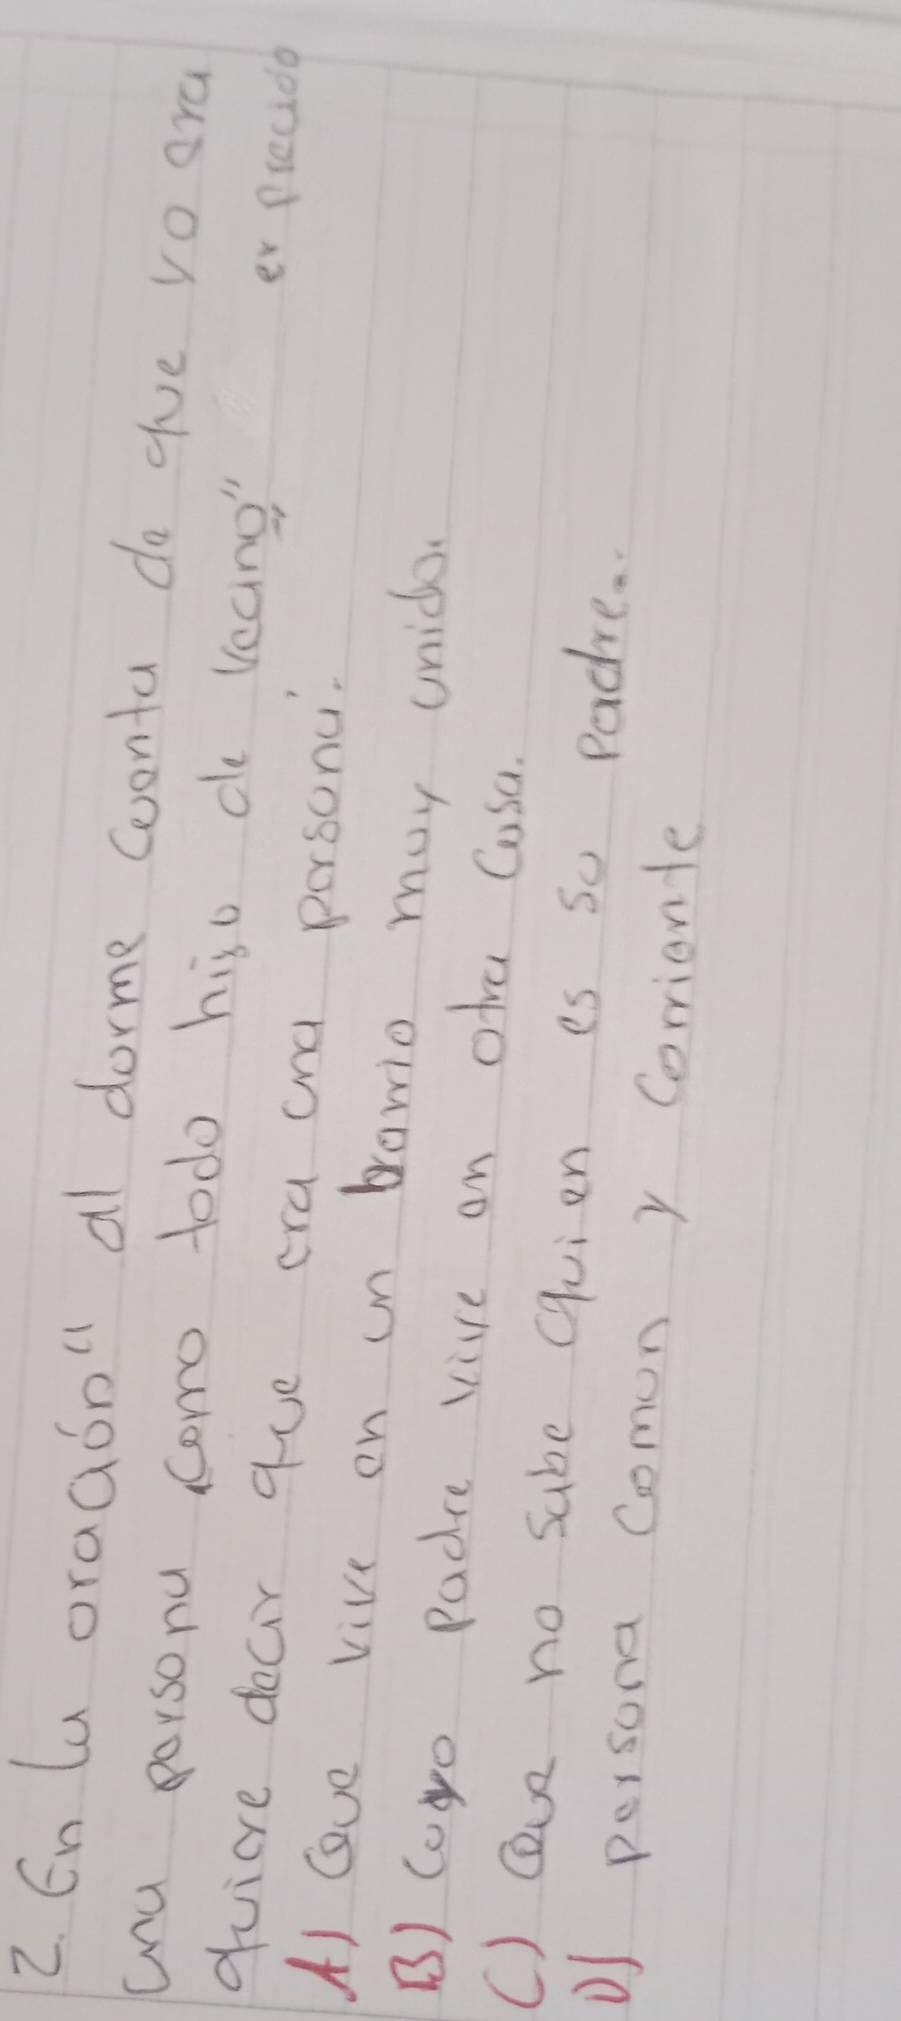 2. En la oración " al dorme cuenta de que yo era
una persona como todo hijo de vecino"
quiere decir que era una persona.
A) Que vive en un barrio muy unido.
B) cuyo padre vive en otra casa.
C) Que no sabe quien es su padre..
D) persona comun y corriente